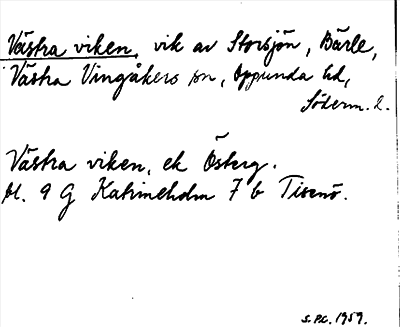 Västra viken, vik av Storsjön, Bärle,
Västra Vingåkers sn, Oppunda hd,
Söderm. l.
Västra viken, ek Österg.
bl. 9 G Katrineholm 7 b Tisenö.
S.P.C. 1959.